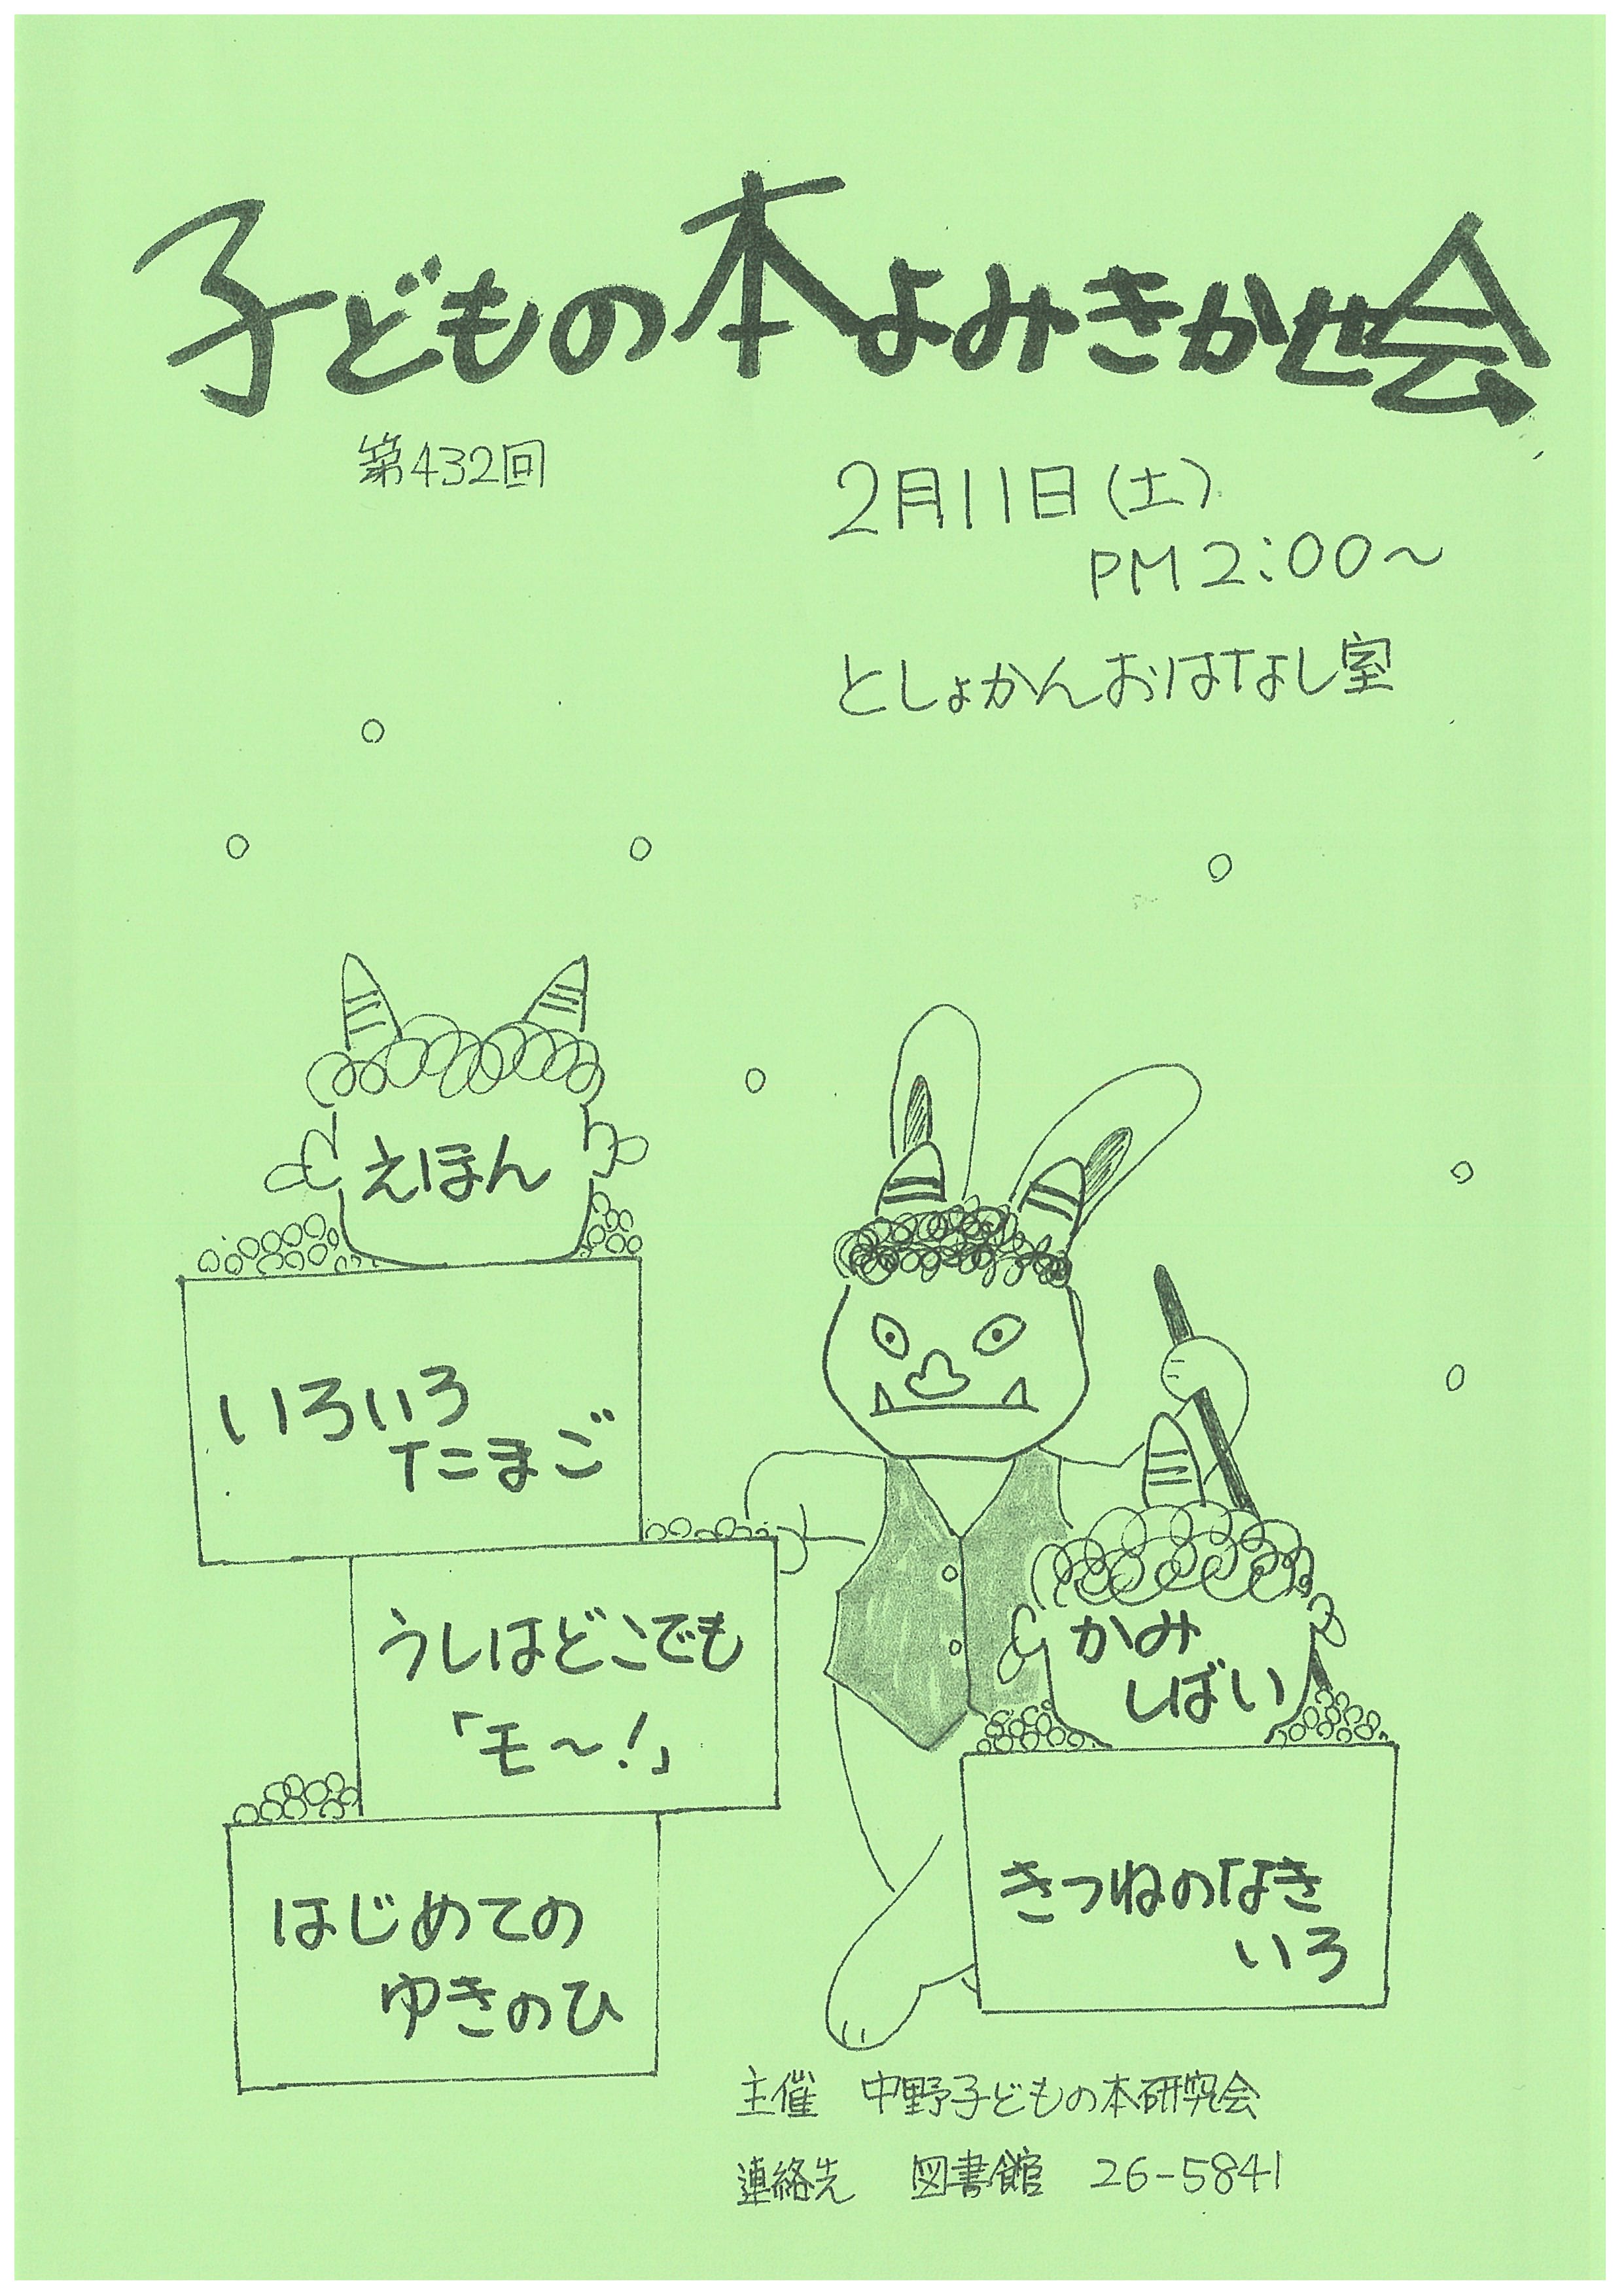 子どもの本よみきかせ会
第432回
2月11日(土)
PM2:00〜
としょかんおはなし室
えほん
いろいろ
たまご
うしはどこでも
「モ〜!」
はじめての
ゆきのひ
かみ
しばい
きつねのなき
いろ
主催 中野子どもの本研究会
連絡先 図書館 26-5841